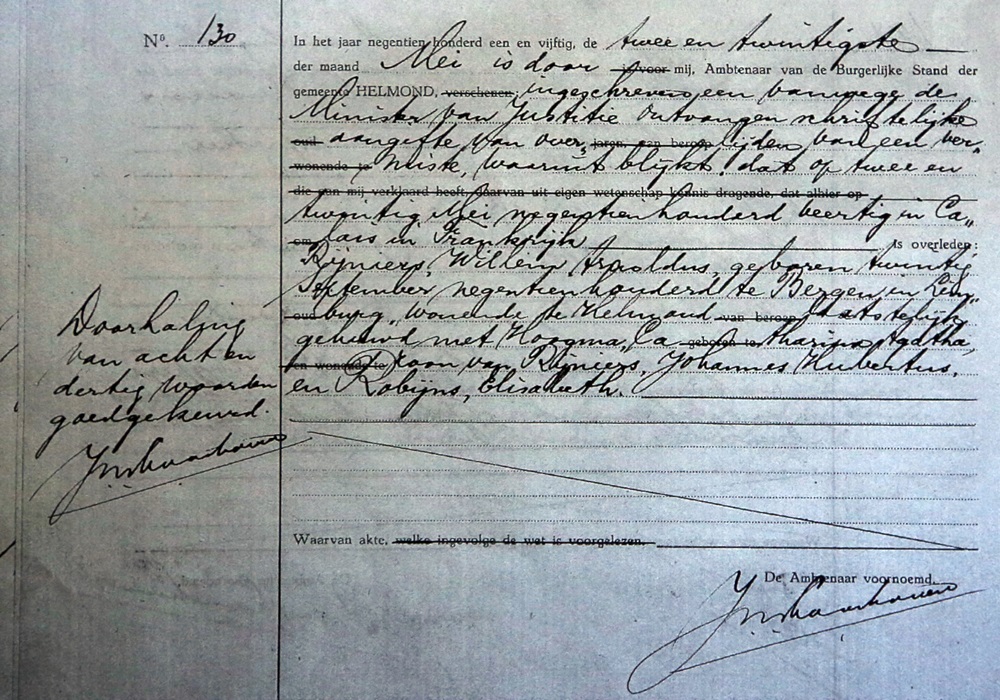 Nº. 130
In het jaar negentien honderd een en vijftig, de twee en twintigste
der maand Mei is door is voor mij, Ambtenaar van de Burgerlijke Stand der
gemeente HELMOND, verschenen: ingeschreven een vanwege de
Minister van Justitie ontvangen schriftelijke
oud aangifte van over„ jaren, van beroep lijden van een ver„
wonende te miste, waaruit blijkt: dat op twee en
die aan mij verklaard heeft, daarvan uit eigen wetenschap kennis dragende, dat alhier op
twintig Mei negentienhonderd veertig in Ca„
om lais in Frankrijk is overleden:
Rijniers, Willem Arnoldus, geboren twintig
September negentienhonderd te Bergen in Lim„
oud burg, wonende te Helmond van beroep laatstelijk
gehuwd met Hoogma, Ca geboren te tharina Agatha,
en wonende te Zoon van Rijniers, Johannes Hubertus,
en Robijns, Elisabeth.
Doorhaling
van acht en
dertig woorden
goedgekeurd.
Waarvan akte, welke ingevolge de wet is voorgelezen.
De Ambtenaar voornoemd,